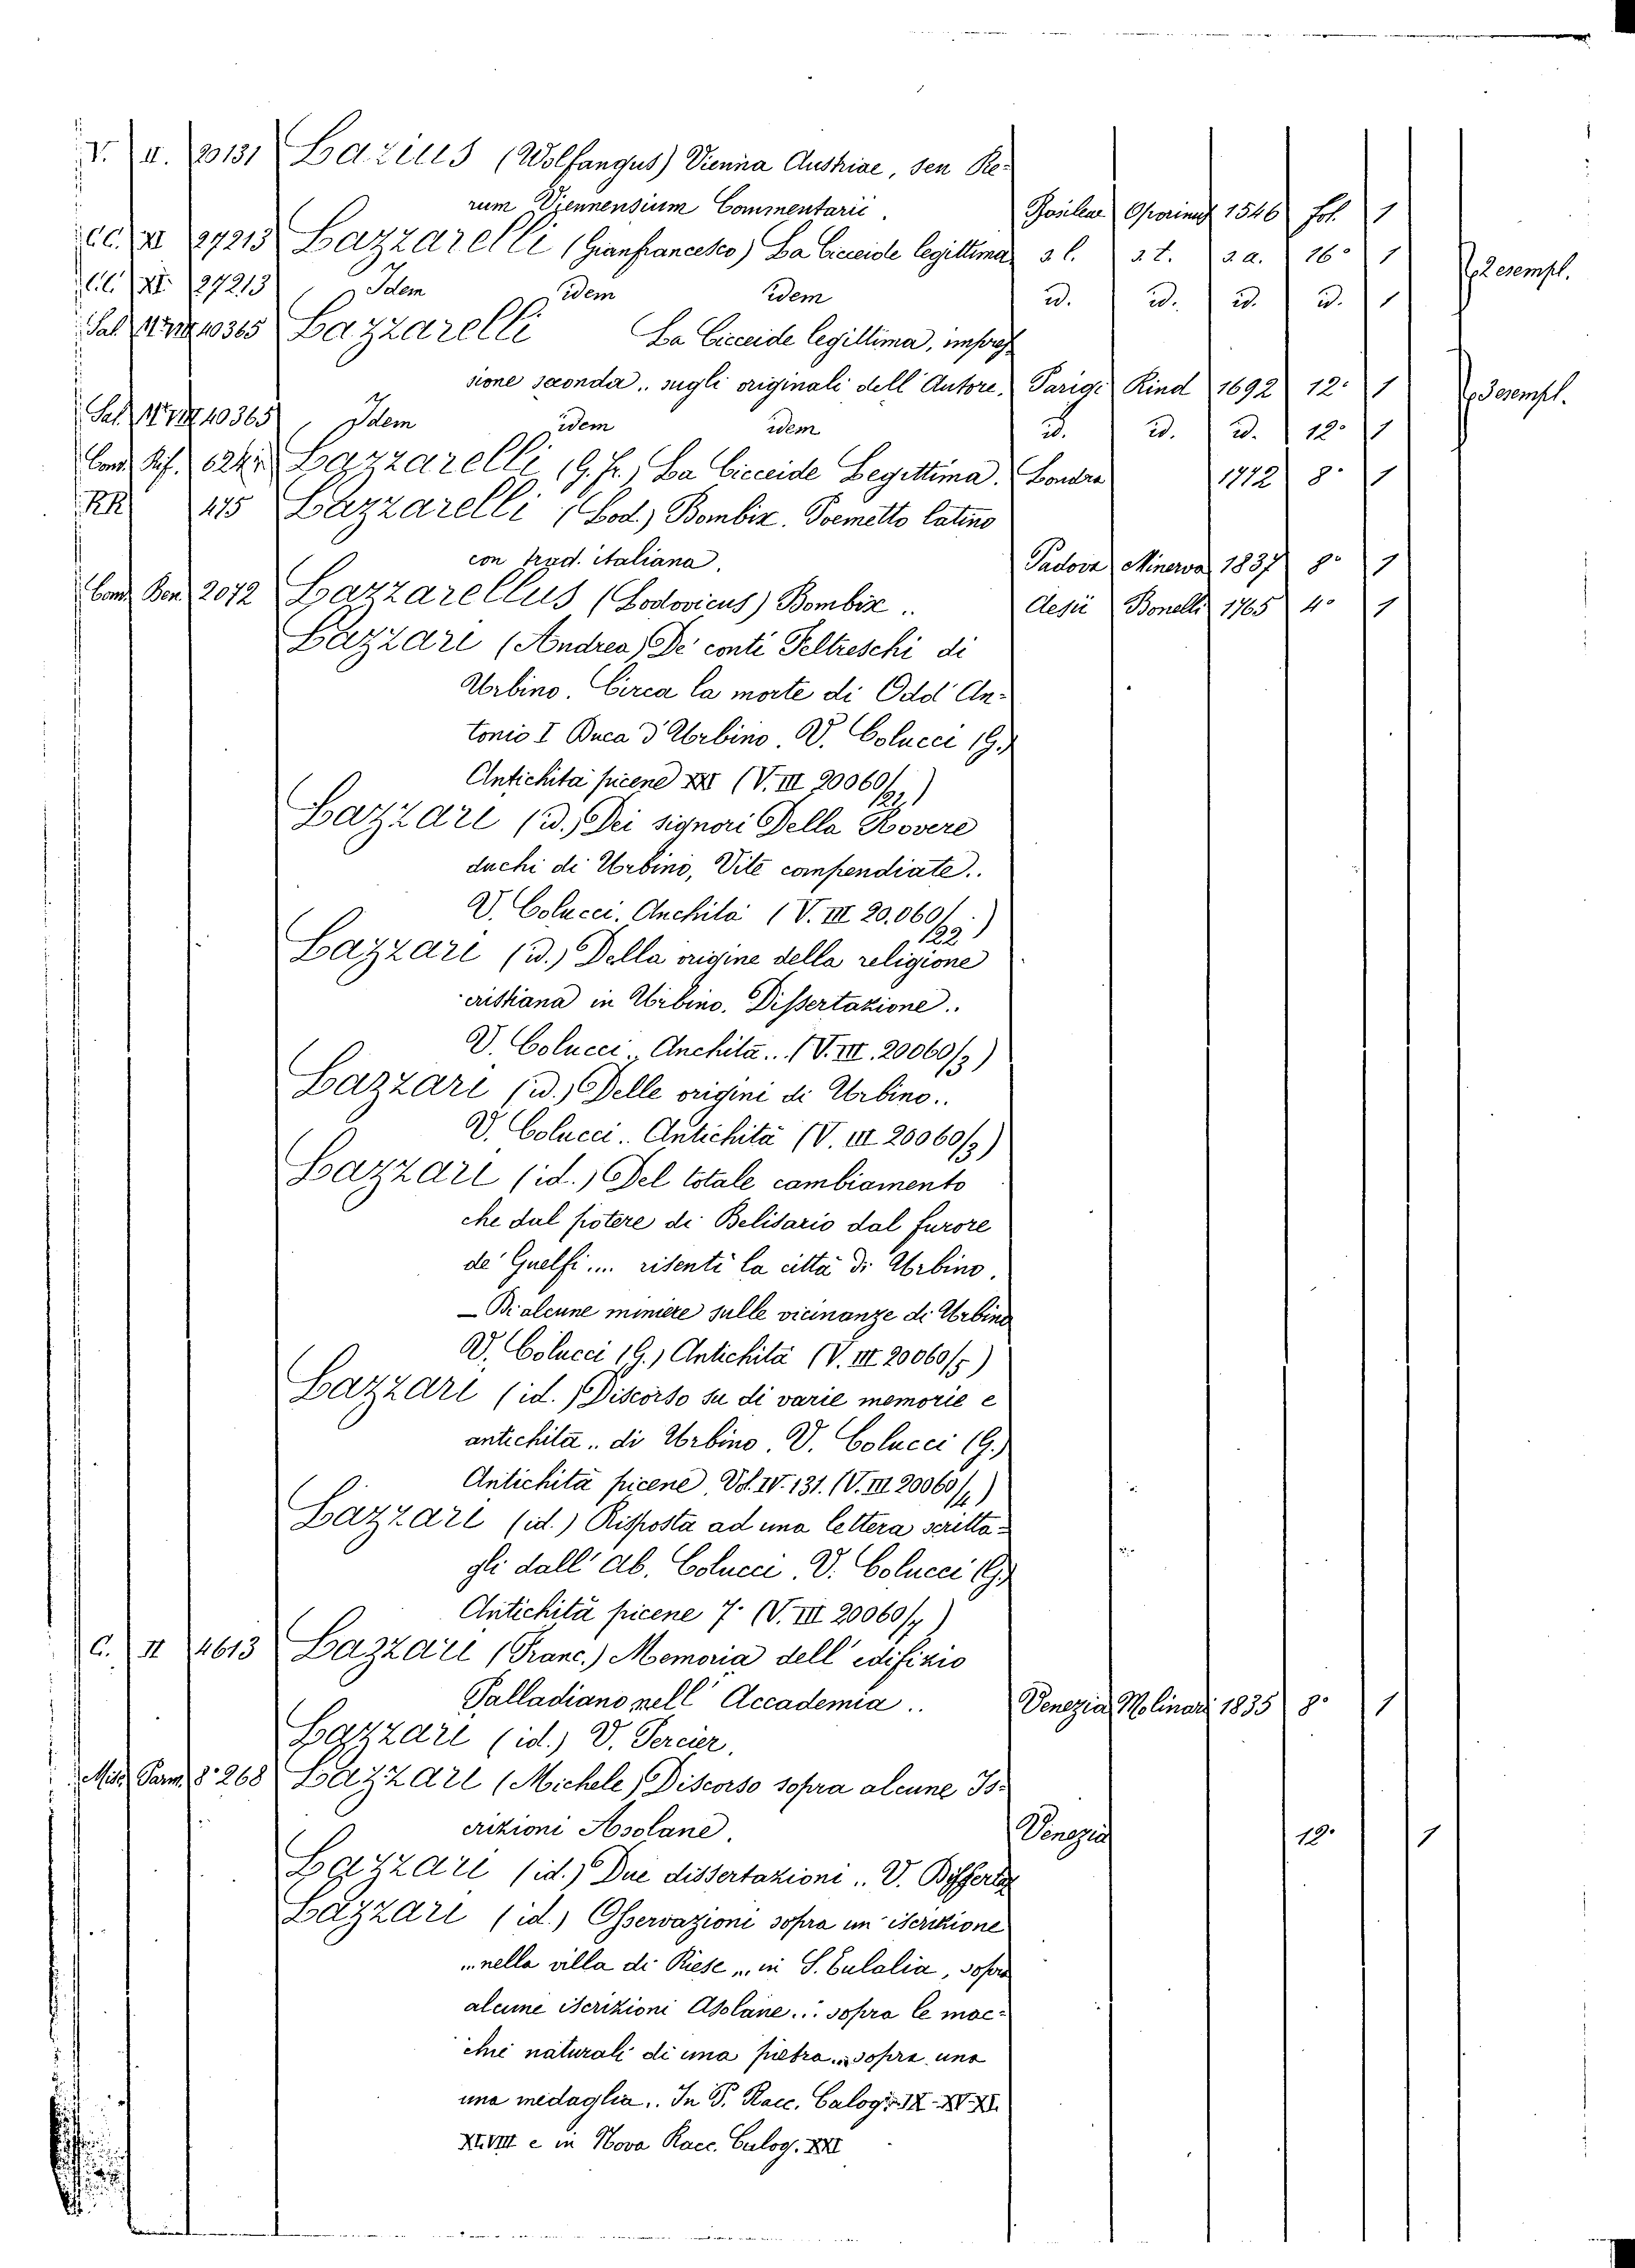 V. II. 20131 Lazius (Wolfangus) Vienna Austriae, seu Re-
rum Viennensium Commentarii. Basileae Oporinus 1546 fol. 1
CC. XI 27213 Lazzarelli (Gianfrancesco) La Cicceide legittima s. l. s. t. s. a. 16° 1
CC. XI. 27213 Idem idem idem id. id. id. id. 1 2 esempl.
Sal. 10365 Lazzarelli La Cicceide legittima, impres
sione seconda.. sugli originali dell'Autore. Parigi Rind 1692 12° 1
Sal. 10365 Idem idem idem id. id. id. 12° 1 esempl.
Cand. Rif. Lazzarelli (G. Fr.) La Cicceide Legittima. Londra 1772 8° 1
RR 475 Lazzarelli (Lod.) Bombix. Poemetto latino
con trad. italiana. Padova Minerva 1837 8° 1
Cand. Ben. 2072 Lazzarellus (Lodovicus) Bombix.. Aesii Bonelli 1765 4° 1
Lazzari (Andrea) De' conti Feltreschi di
Urbino. Circa la morte di Odd'An-
tonio I Duca d'Urbino. V. Colucci (G.)
Antichità picene XXI (V. III 20060/21)
Lazzari (id.) Dei signori Della Rovere
duchi di Urbino, Vite compendiate..
V. Colucci. Anchità (V. III 20.060/22)
Lazzari (id.) Della origine della religione
cristiana in Urbino. Dissertazione..
V. Colucci.. Anchità... (V. III. 20060/3)
Lazzari (id.) Delle origini di Urbino..
V. Colucci.. Antichità (V. III 20060/3)
Lazzari (id.) Del totale cambiamento
che dal potere di Belisario dal furore
de' Guelfi.... risentì la città di Urbino.
— Di alcune miniere sulle vicinanze di Urbino
V. Colucci (G.) Antichità (V. III 20060/5)
Lazzari (id.) Discorso su di varie memorie e
antichità.. di Urbino. V. Colucci (G.)
Antichità picene. Vol. IV. 131. (V. III 20060/4)
Lazzari (id.) Risposta ad una lettera scritta-
gli dall' Ab. Colucci. V. Colucci (G.)
Antichità picene 7° (V. III 20060/7)
C. II 4613 Lazzari (Franc.) Memoria dell'edifizio
Palladiano nell'Accademia.. Venezia Molinari 1835 8° 1
Lazzari (id.) V. Percier.
Misc. Parm. 8° 268 Lazzari (Michele) Discorso sopra alcune Is-
crizioni Asolane. Venezia 12° 1
Lazzari (id.) Due dissertazioni.. V. Dissertaz
Lazzari (id.) Osservazioni sopra un'iscrizione
...nella villa di Riese... in S. Eulalia, sopra
alcune iscrizioni Asolane... sopra le mac-
chie naturali di una pietra... sopra una
una medaglia.. In P. Racc. Calog. IX-XV-XI.
XLVIII e in Nova Racc. Calog. XXI